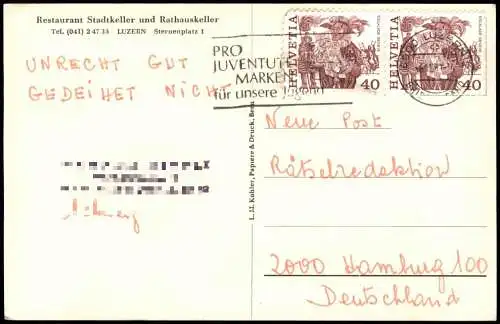 Restaurant Stadtkeller und Rathauskeller
Tel. (041) 2 47 33 LUZERN Sternenplatz 1
UNRECHT GUT
GEDEIHET NICHT
PRO
JUVENTUTE
MARKEN
für unsere Jugend
HELVETIA
40
HELVETIA
40
L. H. Kohler, Papiere & Druck, Bern
Neue Post
Rätselredaktion
2000 Hamburg 100
Deutschland